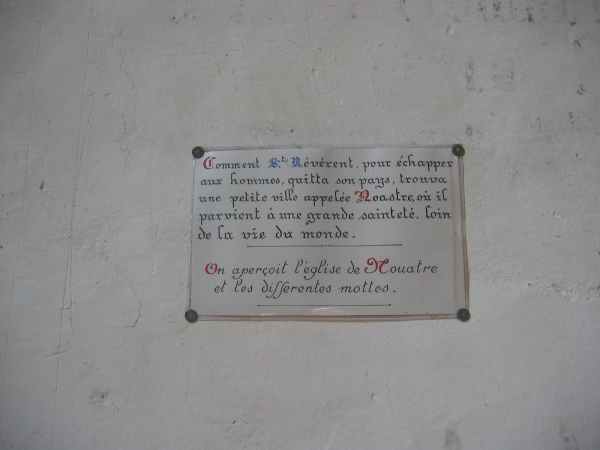 Comment St. Révérent, pour échapper
aux hommes, quitta son pays, trouva
une petite ville appelée Noastre, où il
parvient à une grande sainteté, loin
de la vie du monde.
On aperçoit l'église de Nouatre
et les differentes mottes.